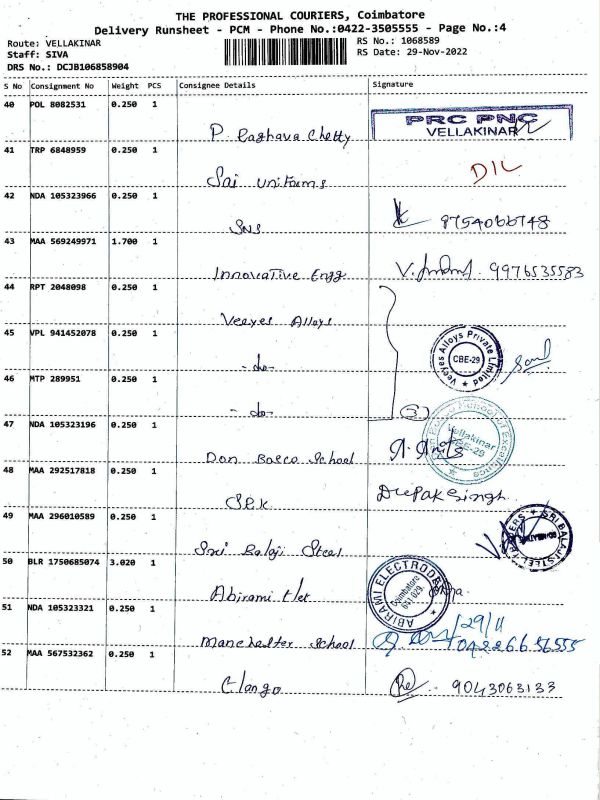 THE PROFESSIONAL COURIERS, Coimbatore
Delivery Runsheet - PCM - Phone No.:0422-3505555 - Page No.:4
Route: VELLAKINAR
Staff: SIVA
DRS No.: DCJB106858904
RS No.: 1068589
RS Date: 29-Nov-2022
S No Consignment No Weight PCS Consignee Details Signature
40 POL 8082531 0.250 1
P. Raghava Chetty
PRC PNC
VELLAKINAR
41 TRP 6848959 0.250 1
Sai Uniforms
DIL
42 NDA 105323966 0.250 1
SNS 9754066748
43 MAA 569249971 1.700 1
Innovative Engg V. 9976535583
44 RPT 2048098 0.250 1
Veeyes Alloys
45 VPL 941452078 0.250 1
- do -
Veeyes Alloys Private Limited
CBE-29
46 MTP 289951 0.250 1
- do -
(3)
47 NDA 105323196 0.250 1
Don Bosco School
School of Excellence
Vellakinar
CBE-29
48 MAA 292517818 0.250 1
SRK Deepak Singh.
49 MAA 296010589 0.250 1
Sri Balaji Steel
SRI BALAJI STEEL TRADERS
50 BLR 1750685074 3.020 1
Abirami Elet
ABIRAMI ELECTRODE
Coimbatore
641 029
51 NDA 105323321 0.250 1
Manchester School
29/11
0422 6656555
52 MAA 567532362 0.250 1
Elango 9043063133